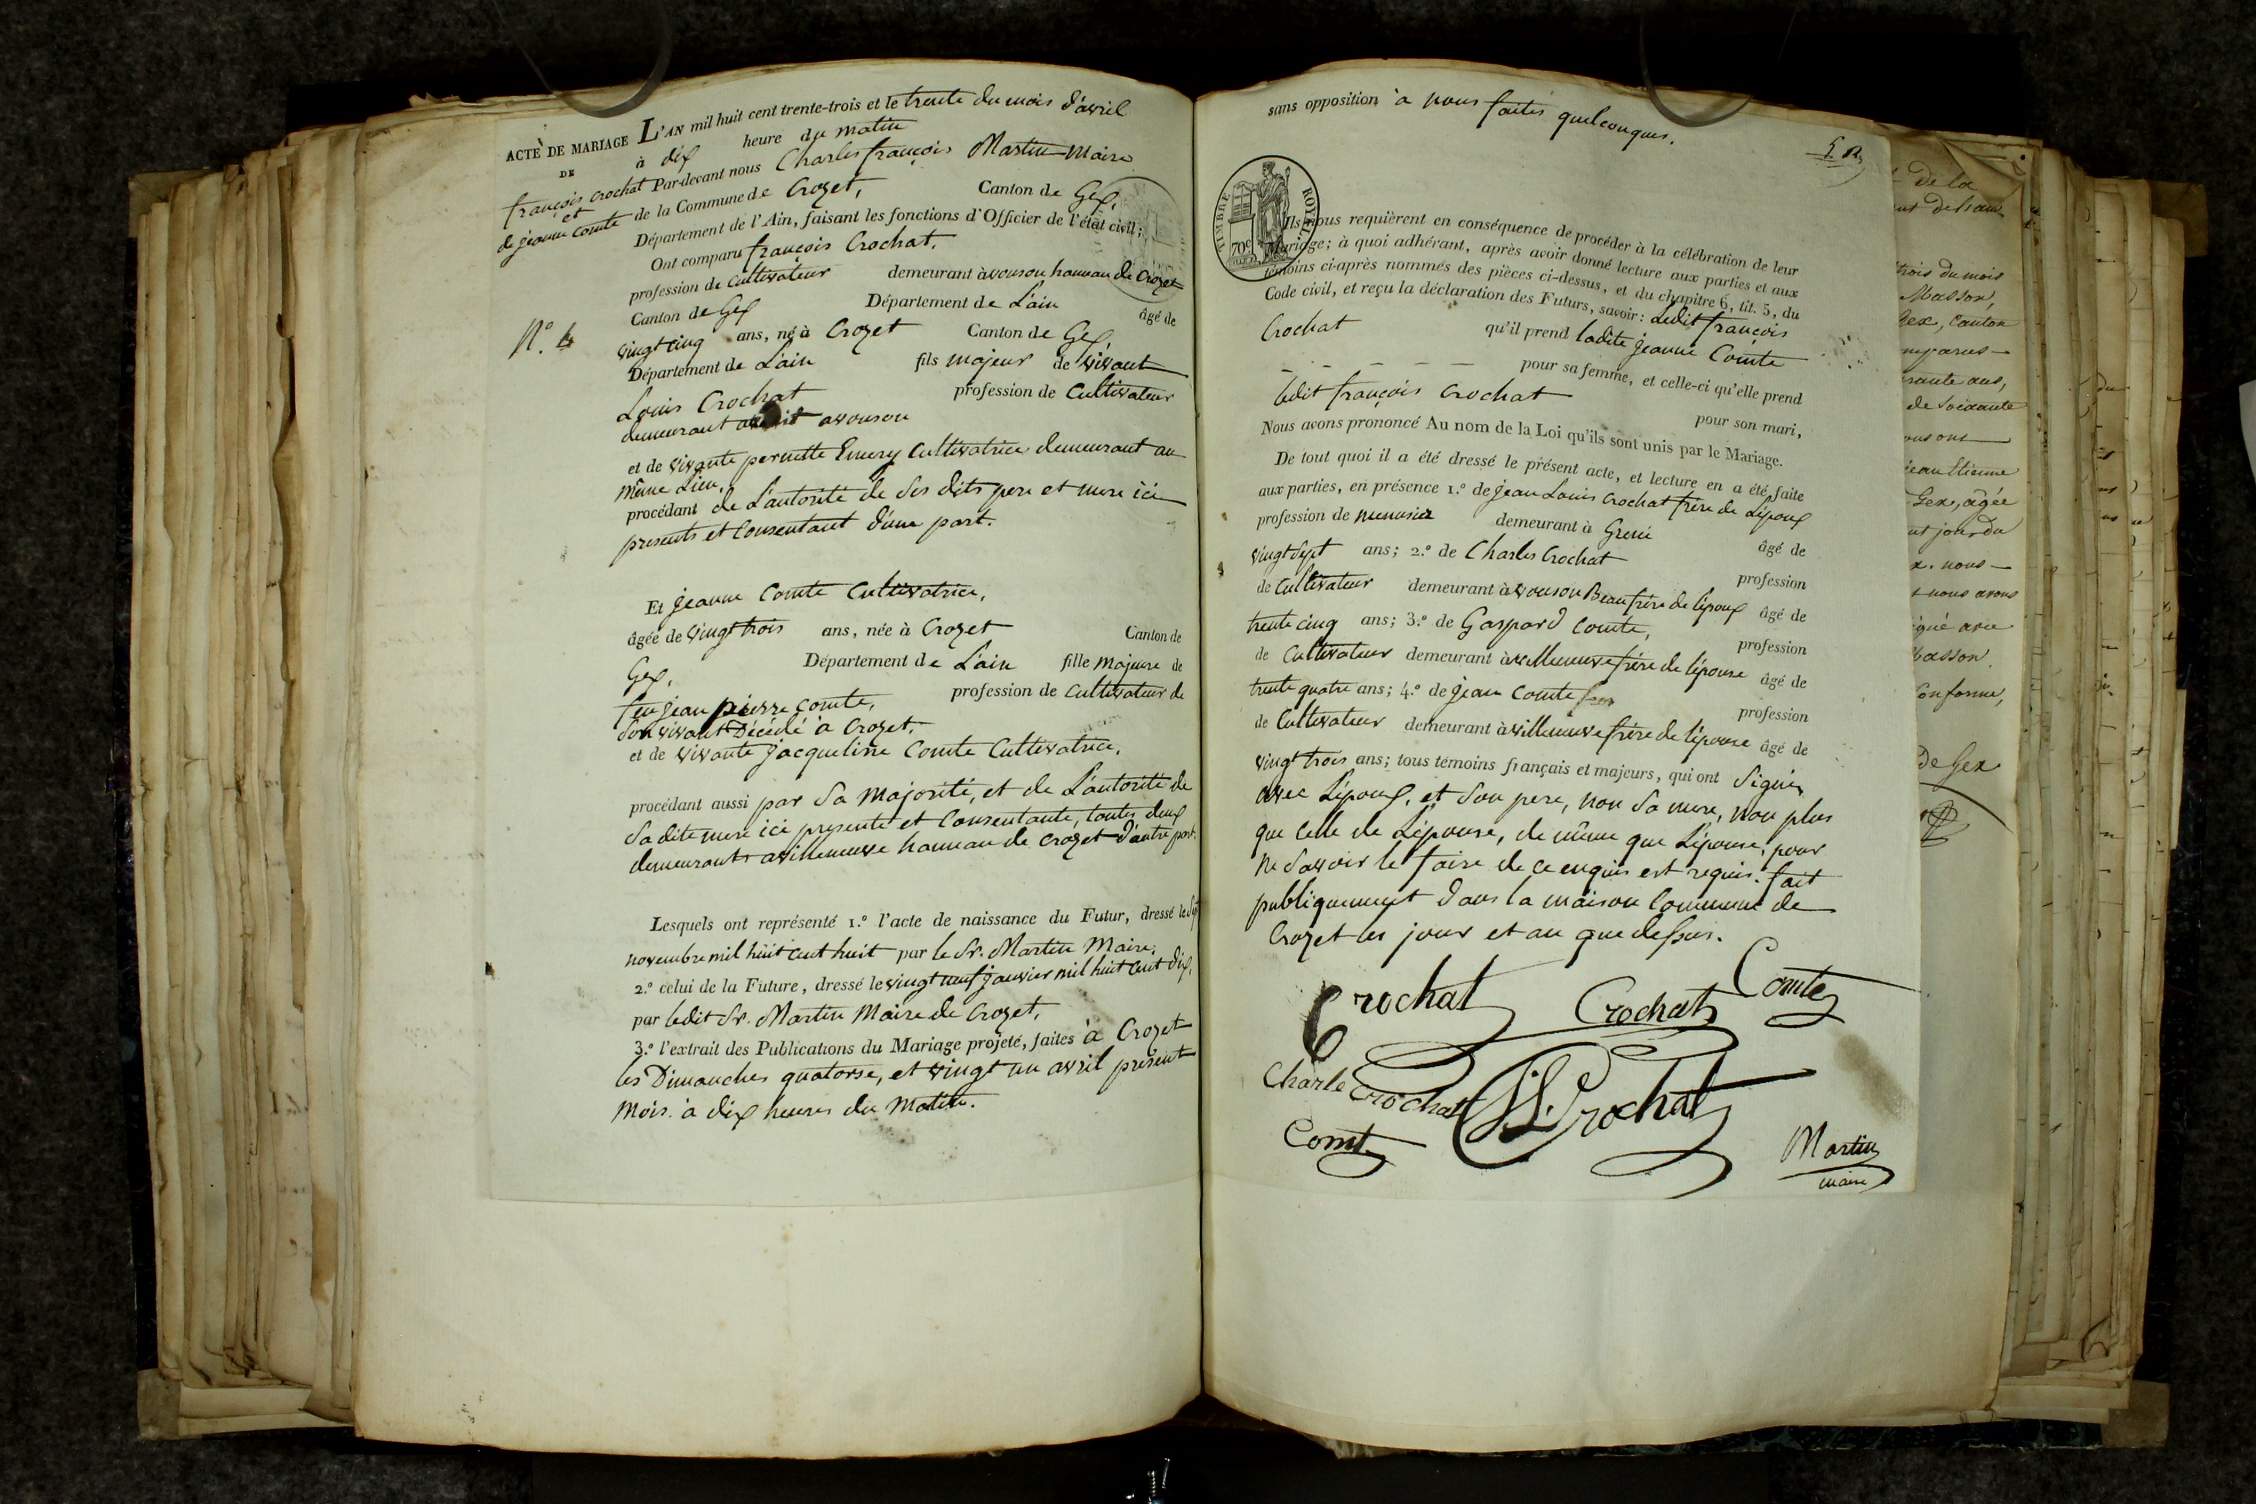 ACTE DE MARIAGE
DE
françois crochat
et
de jeanne Comte
N.o 4
L'AN mil huit cent trente-trois et le trente du mois d'avril
à dix heure du matin
Par-devant nous Charles françois Martin Maire
de la Commune de Crozet, Canton de Gex,
Département de l'Ain, faisant les fonctions d'Officier de l'état civil;
Ont comparu françois Crochat,
profession de Cultivateur demeurant à vouson hameau de Crozet
Canton de Gex Département de L'ain âgé de
vingt cinq ans, né à Crozet Canton de Gex,
Département de L'ain fils majeur de vivant
Louis Crochat profession de Cultivateur
demeurant avouson
et de vivante pernette Emery Cultivatrice demeurant au
même Lieu,
procédant de L'autorité de ses dits pere et mere ici
presents et Consentant d'une part.
Et jeanne Comte Cultivatrice,
âgée de vingt trois ans, née à Crozet Canton de
Gex, Département de L'ain fille majeure de
feu jean pierre Comte, profession de Cultivateur de
son vivant Décédé à Crozet,
et de vivante jacqueline Comte Cultivatrice,
procédant aussi par sa Majorité, et de L'autorité de
sa dite mere ici presente et Consentante, toutes deux
demeurants avilleneuve hameau de crozet d'autre part.
Lesquels ont représenté 1.o l'acte de naissance du Futur, dressé le
novembre mil huit cent huit par le Sr. Martin Maire;
2.o celui de la Future, dressé le vingt neuf janvier mil huit cent dix,
par ledit Sr. Martin Maire de Crozet,
3.o l'extrait des Publications du Mariage projeté, faites à Crozet
les Dimanches quatorse, et vingt un avril présent
mois à dix heures du Matin.
sans opposition à nous faites quelconques.
TIMBRE ROYAL
70c
Ils nous requièrent en conséquence de procéder à la célébration de leur
Mariage; à quoi adhérant, après avoir donné lecture aux parties et aux
témoins ci-après nommés des pièces ci-dessus, et du chapitre 6, tit. 5, du
Code civil, et reçu la déclaration des Futurs, savoir: Ledit françois
Crochat qu'il prend ladite jeanne Comte
pour sa femme, et celle-ci qu'elle prend
ledit françois crochat pour son mari,
Nous avons prononcé Au nom de la Loi qu'ils sont unis par le Mariage.
De tout quoi il a été dressé le présent acte, et lecture en a été faite
aux parties, en présence 1.o de jean Louis crochat frère de L'époux
profession de menusier demeurant à Greni âgé de
vingt sept ans; 2.o de Charles Crochat profession
de Cultivateur demeurant à vouson Beau frère de l'époux âgé de
trente cinq ans; 3.o de Gaspard Comte, profession
de Cultivateur demeurant à villeneuve frère de l'épouse âgé de
trente quatre ans; 4.o de jean Comte profession
de Cultivateur demeurant à villeneuve frère de l'épouse âgé de
vingt trois ans; tous témoins français et majeurs, qui ont Signés
avec L'époux, et son pere, non sa mere, non plus
que Celle de L'épouse, de même que L'épouse, pour
ne savoir le faire de ce enquis est requis. fait
publiquement dans la maison Commune de
Crozet les jour et an que dessus.
Crochat Crochat Comte
Charle Crochat JL Crochat
Comt
Martin
maire
de la
trois du mois
Masson,
Gex, Canton
de soixante
jean Etienne
Gex, âgée
nous
nous avons
Masson.
Conforme,
de Gex